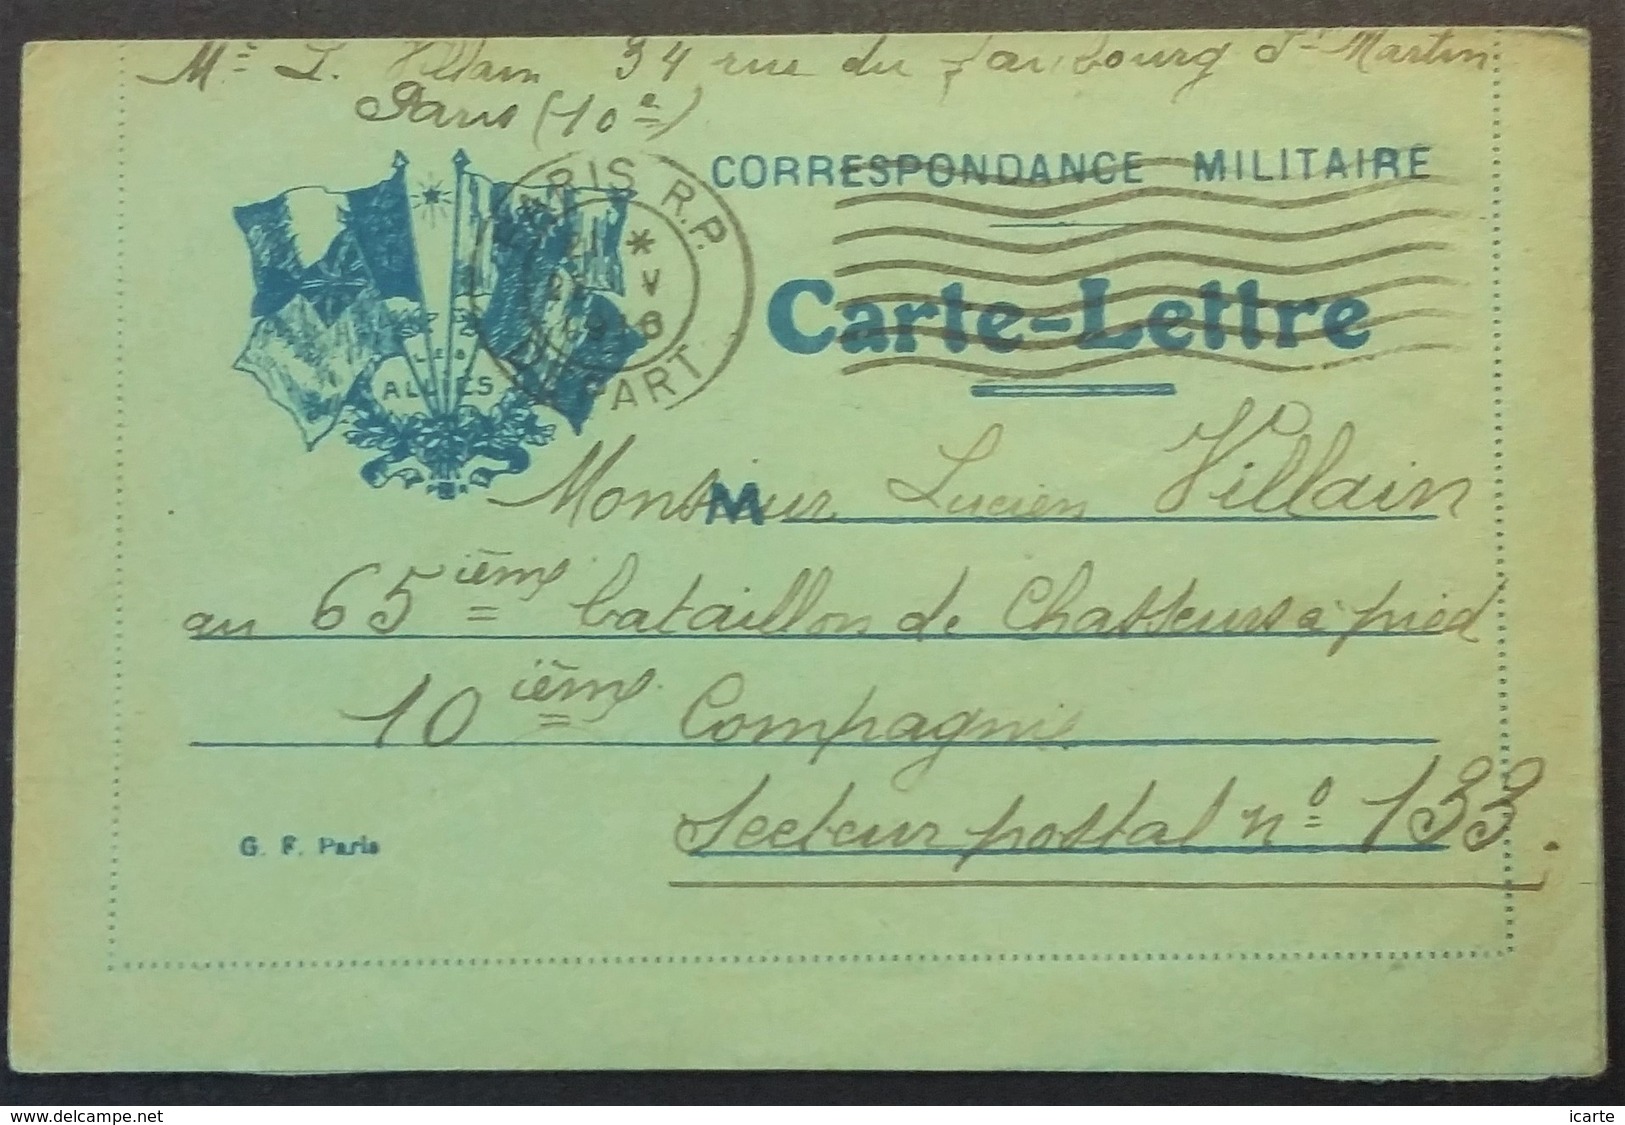 Me L. Villain 94 rue du Faubourg St Martin
Paris (10e)
CORRESPONDANCE MILITAIRE
PARIS R.P.
21 *
V
1916
DEPART
LES
ALLIÉS
Carte-Lettre
Monsieur Lucien Villain
au 65ième bataillon de Chasseurs à pied
10ième Compagnie
Secteur postal no 133.
G. F. Paris
delcampe.net
icarte